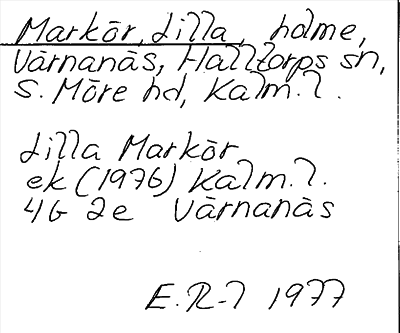 Markör, Lilla, holme,
Värnanäs, Halltorps sn,
S. Möre hd, Kalm. l.
Lilla Markör
ek (1976) Kalm. l.
4G 2e Värnanäs
E. R-l 1977